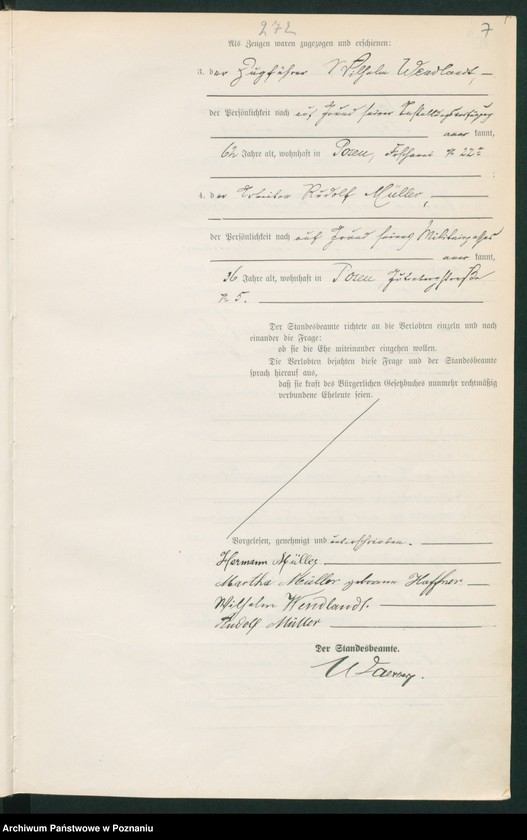 272
7
Als Zeugen waren zugezogen und erschienen:
3. der Zugführer Wilhelm Wendlandt,
der Persönlichkeit nach auf Grund seiner
aner kannt,
62 Jahre alt, wohnhaft in Posen,
4. der Arbeiter Rudolf Müller,
der Persönlichkeit nach auf Grund seines Militärpasses
aner kannt,
36 Jahre alt, wohnhaft in Posen
№ 5.
Der Standesbeamte richtete an die Verlobten einzeln und nach
einander die Frage:
ob sie die Ehe miteinander eingehen wollen.
Die Verlobten bejahten diese Frage und der Standesbeamte
sprach hierauf aus,
daß sie kraft des Bürgerlichen Gesetzbuches nunmehr rechtmäßig
verbundene Eheleute seien.
Vorgelesen, genehmigt und unterschrieben.
Hermann Müller
Martha Müller geborene Haffner
Wilhelm Wendlandt.
Rudolf Müller
Der Standesbeamte.
Archiwum Państwowe w Poznaniu